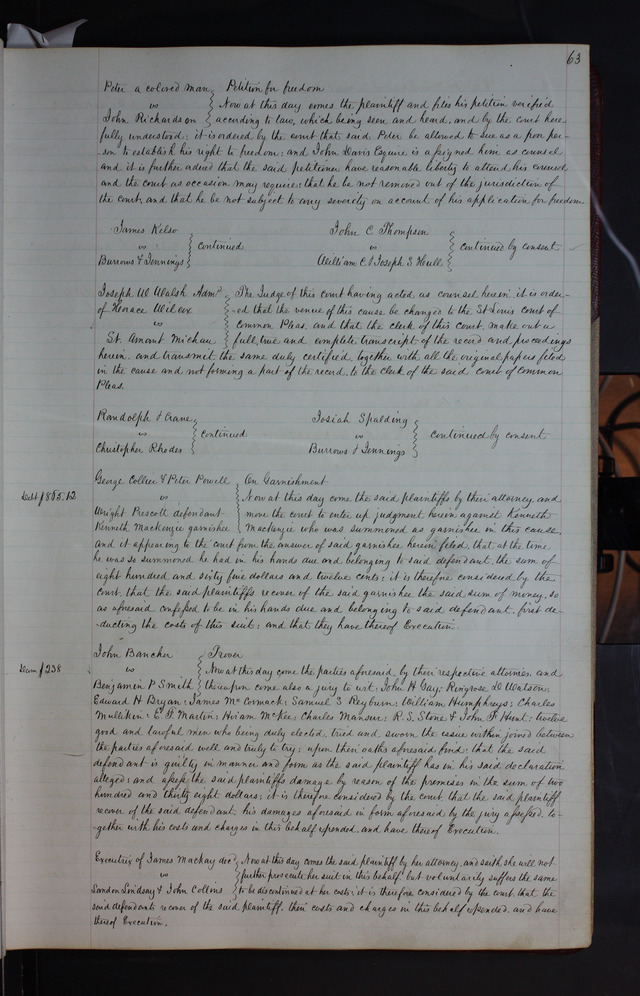 63
Peter a colored man } Petition for freedom
vs } Now at this day comes the plaintiff and files his petition verified
John Richardson } according to law, which being seen and heard, and by the court here
fully understood; it is ordered by the court that said Peter be allowed to sue as a poor per-
-son to establish his right to freedom; and John Davis Esquire is assigned him as counsel
and it is further ordered that the said petitioner have reasonable liberty to attend his counsel
and the court as occasion may require; that he be not removed out of the jurisdiction of
the court, and that he be not subject to any severity on account of his application for freedom
James Kelso } John C Thompson }
vs } continued vs } continued by consent
Burrows & Jennings } William C & Joseph S Hull }
Joseph W Walsh Admr } The Judge of this court having acted as counsel herein it is order-
of Horace Wilcox } -ed that the venue of this cause be changed to the St Louis court of
vs } Common Pleas, and that the clerk of this court, make out a
St. Amant Michau } full, true and complete transcript of the record and proceedings
herein, and transmit the same duly certified, together with all the original papers filed
in the cause and not forming a part of the record, to the clerk of the said court of Common
Pleas.
Randolph & Crane } Josiah Spalding }
vs } continued vs } continued by consent
Christopher Rhodes } Burrows & Jennings }
George Collier & Peter Powell } On Garnishment
Debt $865.12 vs } Now at this day come the said plaintiffs by their attorney, and
Wright Prescott defendant } move the court to enter up judgment herein against Kenneth
Kenneth Mackenzie garnishee } Mackenzie who was summoned as garnishee in this cause,
and it appearing to the court from the answer of said garnishee herein filed, that at the time
he was so summoned he had in his hands due and belonging to said defendant, the sum of
eight hundred and sixty five dollars and twelve cents; it is therefore considered by the
court, that the said plaintiffs recover of the said garnishee the said sum of money, so
as aforesaid confessed to be in his hands due and belonging to said defendant, first de-
-ducting the costs of this suit; and that they have thereof Execution.
John Bancher } Trover
Dam $238 vs } Now at this day come the parties aforesaid by their respective attornies and
Benjamin P Smith } thereupon come also a jury to wit; John H Gay; Ringrose D Watson;
Edward H Bryan; James McCormack; Samuel S Rayburn; William Humphreys; Charles
Mullikin; E. H Martin; Hiram McKee; Charles Mansur; R. S. Stone & John F Hunt; twelve
good and lawful men who being duly elected, tried and sworn the issue within joined between
the parties aforesaid well and truly to try; upon their oaths aforesaid find; that the said
defendant is guilty in manner and form as the said plaintiff has in his said declaration
alleged; and assess the said plaintiffs damage by reason of the premises in the sum of two
hundred and thirty eight dollars; it is therefore considered by the court, that the said plaintiff
recover of the said defendant, his damages aforesaid in form aforesaid by the jury assessed, to-
-gether with his costs and charges in this behalf expended, and have thereof Execution.
Executrix of James Mackay decd } Now at this day comes the said plaintiff by her attorney, and saith she will not
vs } further prosecute her suit in this behalf, but voluntarily suffers the same
Landon Lindsay & John Collons } to be discontinued at her costs; it is therefore considered by the court, that the
said defendants recover of the said plaintiff, their costs and charges in this behalf expended, and have
thereof Execution.